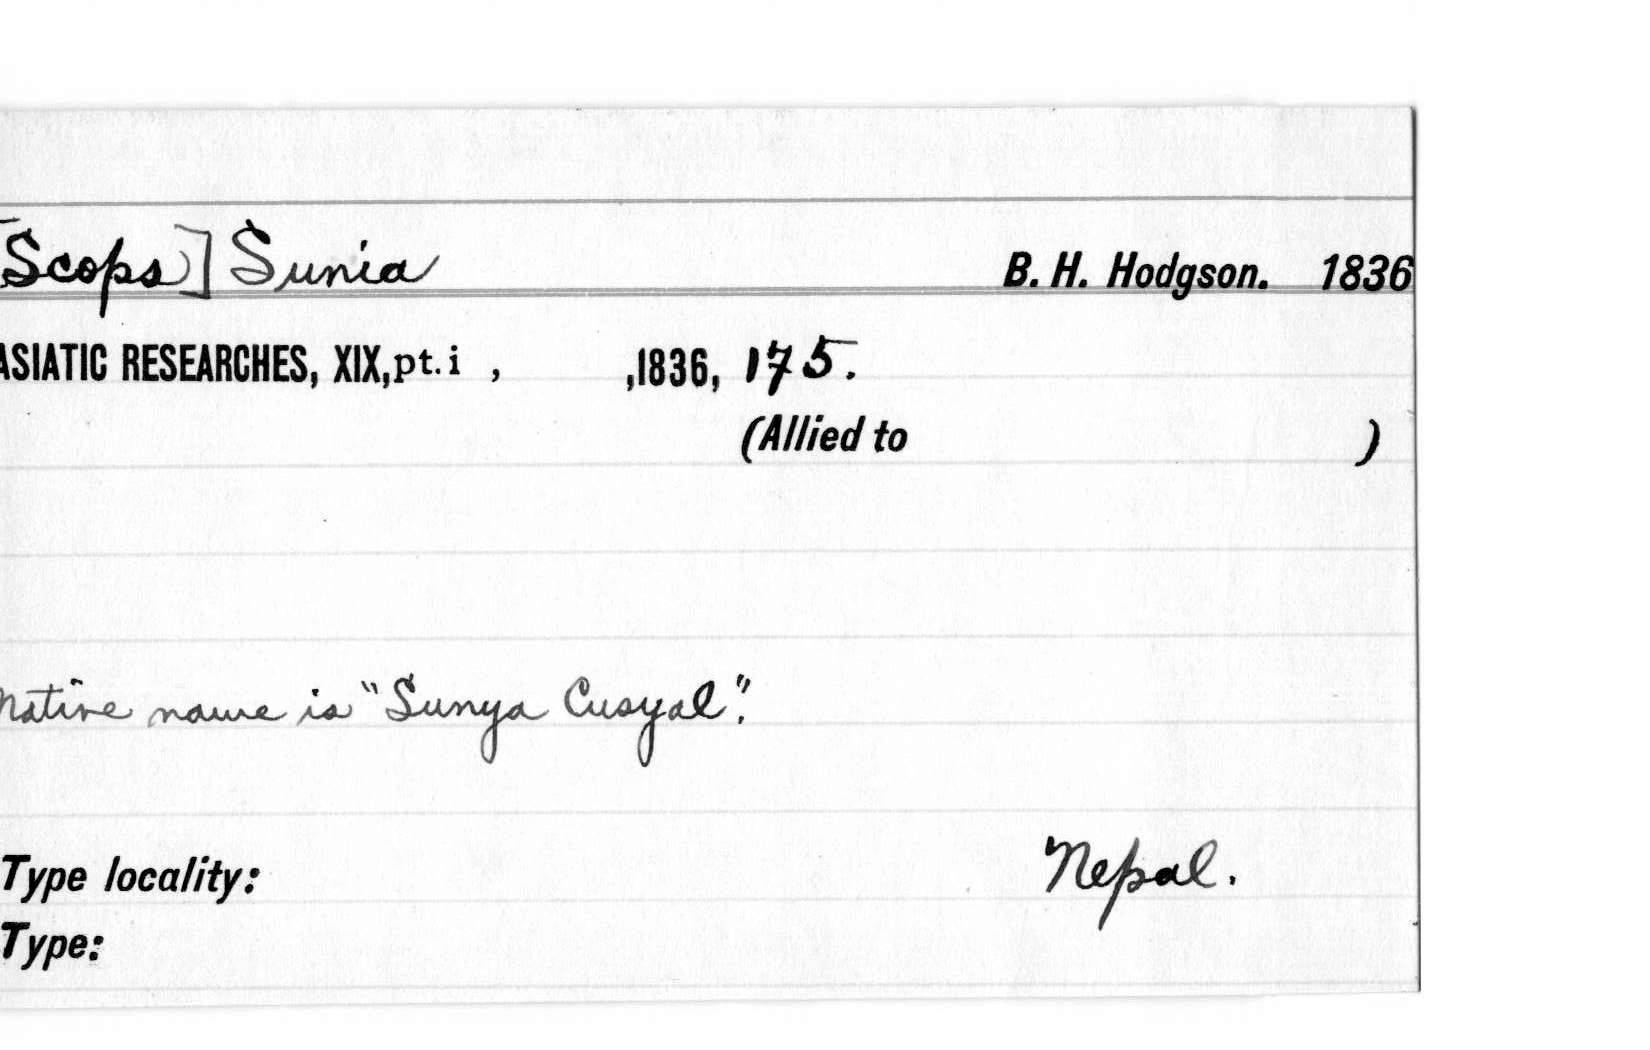 [Scops] Sunia B. H. Hodgson. 1836
ASIATIC RESEARCHES, XIX, pt. i , ,1836, 175.
(Allied to )
Native name is "Sunya Cusyal".
Type locality: Nepal.
Type: